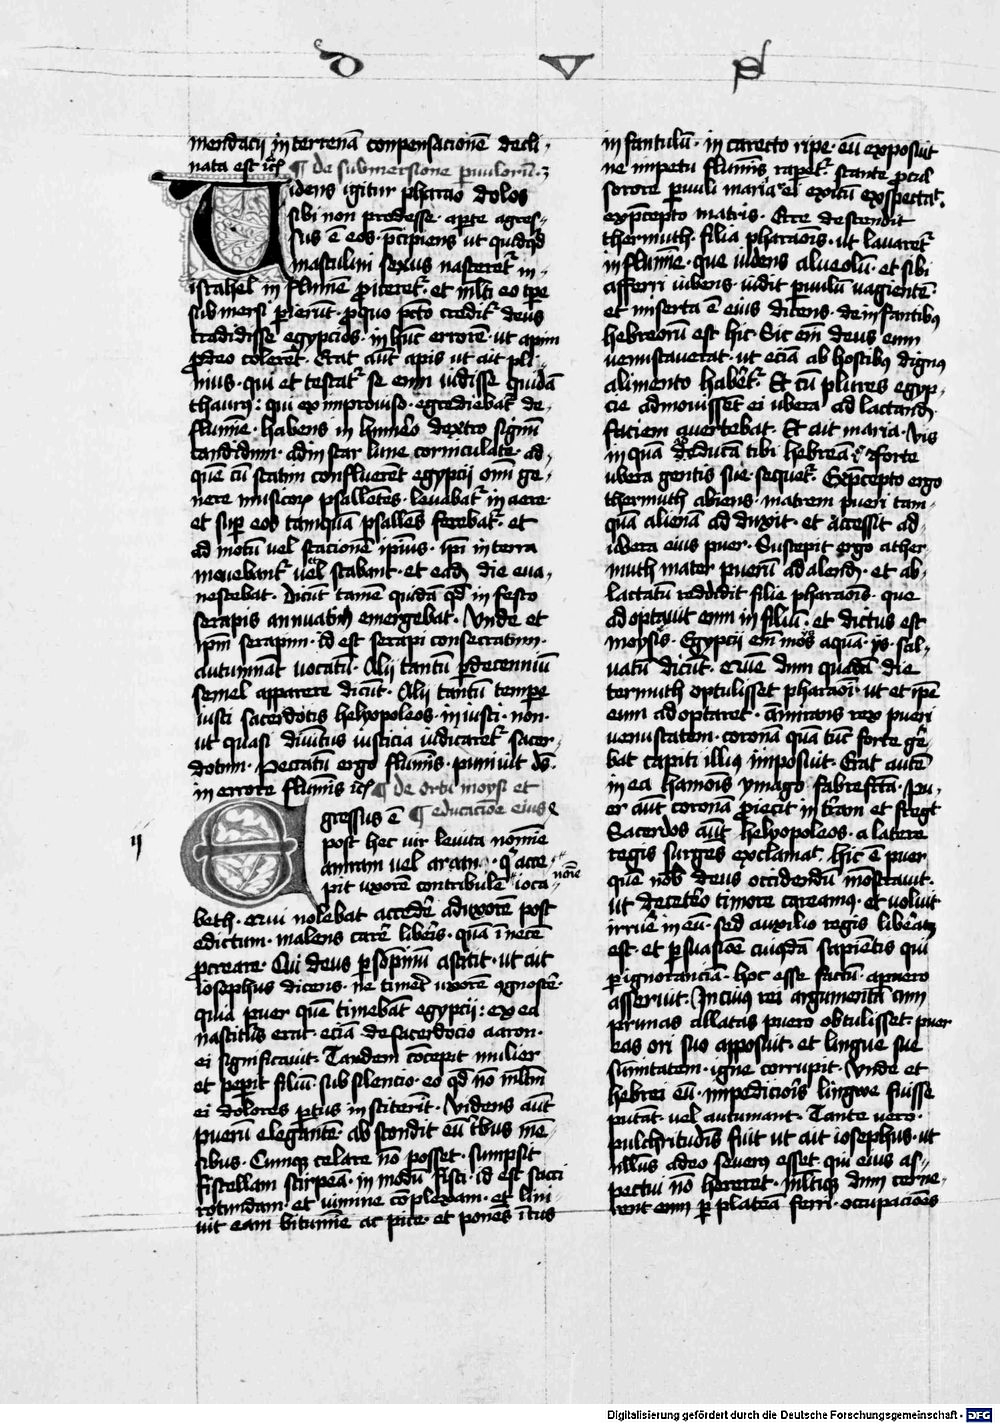 mendacii in terrenā compensacionē decli-
nata est ic̄
¶ de submersione puulorū
Uidens igitur pharao dolos
sibi non prodesse · apte agres-
sus ē eos · p̄cipiens ut quidq̇d
masculini sexus nasceretʳ in
israhel in flumē proiceretʳ · et ml̄ti eo tpe
submersi perierūt · pro quo pctō creditʳ deus
tradidisse egypcios · in hūc errorē · ut apim
pro deo colerēt · Erat aūt apis ut ait pli-
nius · qui et testatʳ se eum vidisse quidā
thaurus : qui ex improviso · egrediebatʳ de
flumīe · habens in humēo dextro signū
candidum · ad instar lune corniculate · ad
quē cū statim confluerēt egypcii omī ge-
nere musicoꝝ psallētes · levabatʳ in aere ·
et sup eos tamquā psallēs ferebatʳ · et
ad motū vel stacionē ipius · ipī in terra
movebantʳ vel stabant · et eadē die eva-
nescebat · Dicūt tamē quidā qd̄ in festo
serapis annuatim emergebat · Vnde et
ipm̄ serapim · id est serapi consecratum ·
autumāt vocatū · Alii tantū per decenniū
semel apparere dicūt · Alii tantū tempe
iusti sacerdotis helyopoleos · iniusti · non ·
ut quasi diuītus iusticia iudicaretʳ sacer-
dotum · Peccatū ergo flumīs · puniuit ds̄ ·
in errore flumīs ic̄
¶ de ortu moysi et
¶ educacioe eius
Egressus ē
ij
post hec vir levita nomīe
amram vel aram · q̇ acce
pit vxorē contribulē ioca
nomē
beth · Qui nolebat accedē ad vxorē post
edictum · malens carē libeis · quā ī necē
procreare · Cui deus per sōpniū astitit · ut ait
iosephus dicens · ne timeēt vxorē 9gnoscē ·
quia puer quē timebāt egypcii : ex ea
nasciturus erat · eciā de sacerdocio aaron ·
ei significavit · Tandem cōcepit mulier
et pepit filiū · sub silencio · eo qd̄ nō ml̄tū
ei dolores ptus institerīt · Videns aūt
puerū elegantē · abscondit eū tbus mē-
sibus · Cumq celare nō posset · sumpsit
fistellam scirpeā · in modū fisci · id est sacci
rotundam · et vimine cōplexam · et lini-
vit eam bitumīe ac pice · et ponēs ītus
infantulū · in carecto ripe · eū exposuit
ne impetu flumīs rapetʳ · stante procul
sorore puuli maria · ei exitū exspectatʳ ·
ex pcepto matris · Ecce descendit
thermuth · filia pharaoīs · ut lauaretʳ
in flumīe · que videns alveolū · et sibi
afferri iubens · uidit puulū vagientē ·
et miserta ē eius dicens · de infantibus
hebreorū est hic · Sic em̄ deus eum
venustauerat · ut eciā ab hostibus dignus
alimento habētʳ · Et cū plures egyp-
cie admouissēt ei vbera ad lactand ·
faciem auertebat · Et ait maria · Vis
inquā adducā tibi hebreā · forte
vbera gentis sue · sequetʳ · Ex pcepto ergo
thermuth abiens · matrem pueri tam-
quā alienā adduxit · et accessit ad
vbera eius puer · Suscepit ergo a ther
muth mater puerū ad alend · et ab-
lactatū reddidit filie pharaoīs · que
adoptauit eum in filiū · et dictus est
moyses · Egyptii em̄ mos aquā · ys · sal-
vatū dicūt · Quē dum quadā die
termuth optulisset pharaoī · ut et ipē
eum adoptaret · āmirans rex pueri
venustatem · coronā quā tūc forte ge-
bat capiti illius imposuit · Erat autē
in ea hamoīs ymago fabrefcta · Pu-
er aūt coronā proiecit in trām et fregit
Sacerdos aūt helyopoleos · a latere
regis surgēs exclamat · hic ē puer
quē nob deus occidendū mōstrauit ·
ut de cetero timore careamus · et voluit
irruē in eū · sed auxilio regis libeatus
est · et persuasiōe cuiusdā sapiētis qui
per ignoranciā · hoc esse factū · a puero
asseruit · In cuius rei argumentū cum
prunas allatas puero obtulisset · puer
eas ori suo apposuit · et lingue sue
summitatem · igne corrupit · Vnde et
hebrei eū · impedicioīs lingwe fuisse
putāt · vel autumant · Tante vero ·
pulchritudīs fuit ut ait iosephus · ut
nullus adeo severus esset qui eius as-
pectui nō hereret · Ml̄tiq dum cerne-
rent eum per plateā ferri · occupacioēs
Digitalisierung gefördert durch die Deutsche Forschungsgemeinschaft - DFG